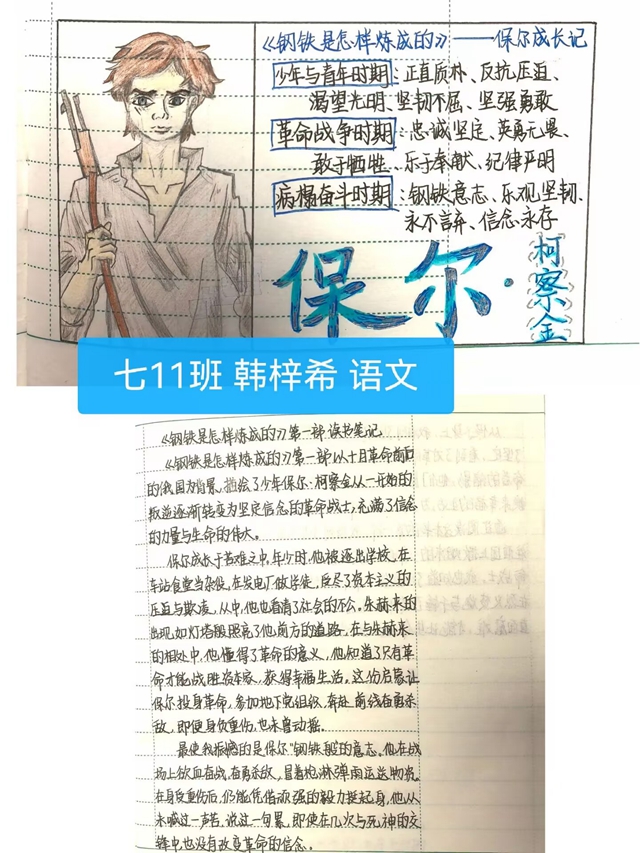 《钢铁是怎样炼成的》——保尔成长记
少年与青年时期:正直质朴、反抗压迫、
渴望光明、坚韧不屈、坚强勇敢
革命战争时期:忠诚坚定、英勇无畏、
敢于牺牲、乐于奉献、纪律严明
病榻奋斗时期:钢铁意志、乐观坚韧、
永不言弃、信念永存
保尔·柯察金
七11班 韩梓希 语文
《钢铁是怎样炼成的》第一部 读书笔记
《钢铁是怎样炼成的》第一部以十月革命前后
的俄国为背景,描绘了少年保尔·柯察金从一开始的
叛逆逐渐转变为坚定信念的革命战士,充满了信念
的力量与生命的伟大。
保尔成长于苦难之中,年少时,他被逐出学校,在
车站食堂当杂役,在发电厂做学徒,受尽了资本主义的
压迫与欺凌,从中,他也看清了社会的不公。朱赫来的
出现,如灯塔般照亮了他前方的道路,在与朱赫来
的相处中,他懂得了革命的意义,他知道了只有革
命才能战胜资本家,获得幸福生活。这份启蒙让
保尔投身革命,参加地下党组织,奔赴前线奋勇杀
敌,即便身负重伤,也未曾动摇。
最使我振撼的是保尔"钢铁般"的意志。他在战
场上欲血奋战,奋勇杀敌,冒着枪淋弹雨运送物资,
在身负重伤后,仍能凭借顽强的毅力挺起身,他从
未喊过一声苦,说过一句累,即使在几次与死神的交
锋中,也没有改变革命的信念。